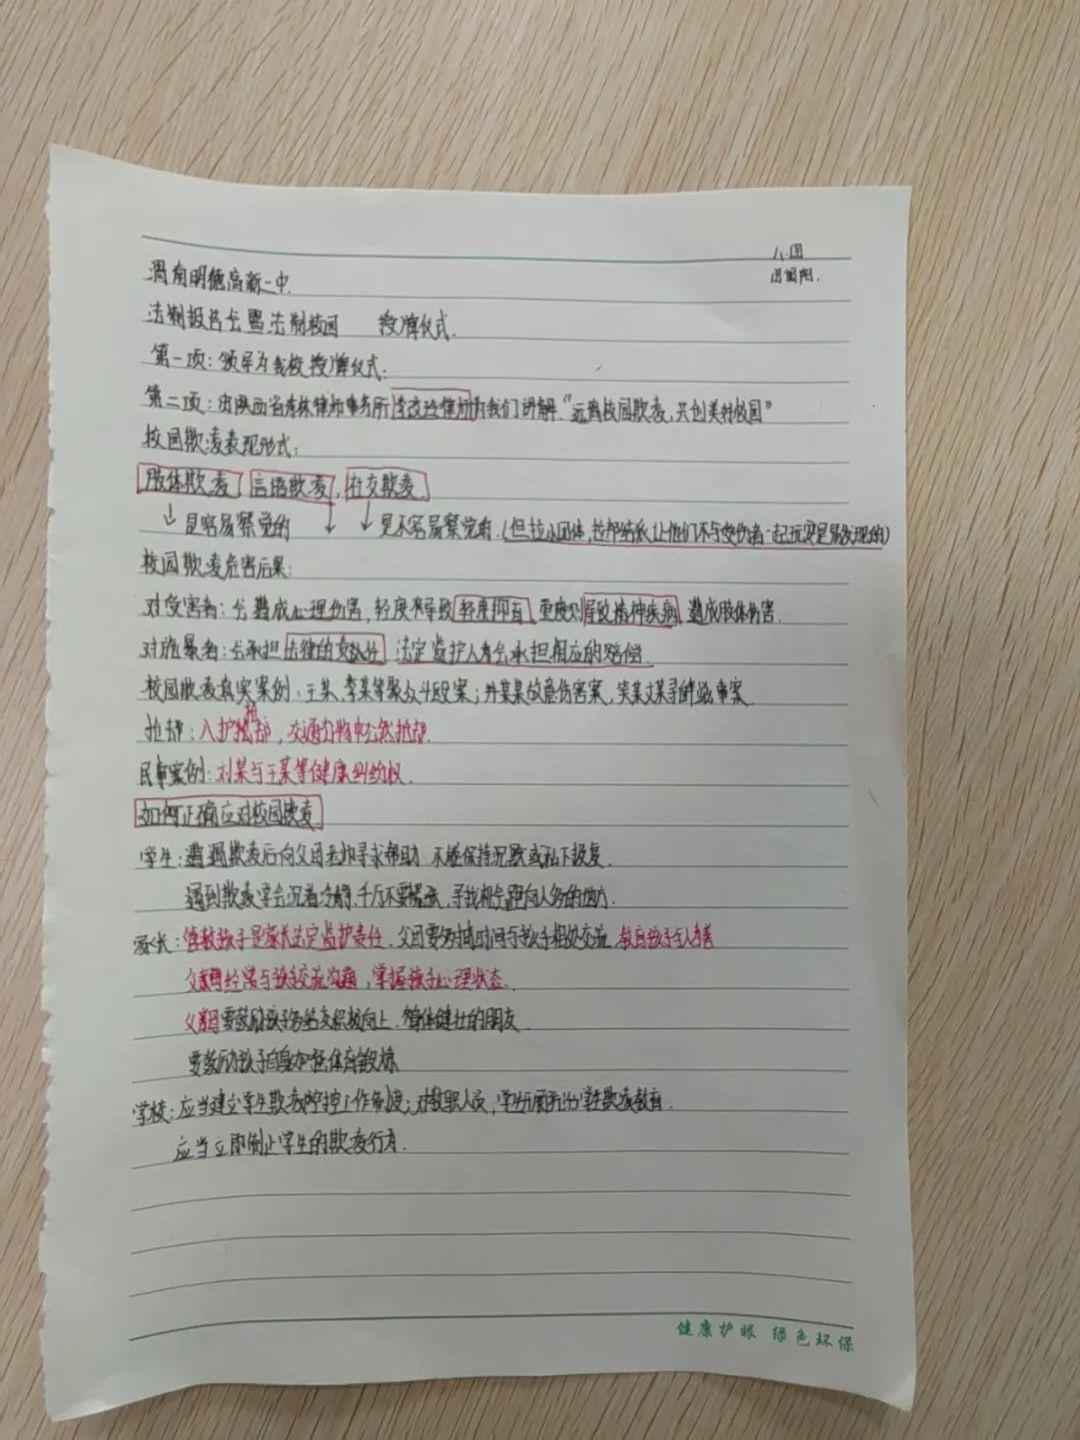 渭南明德高新一中
法制报告会暨法制校园 授牌仪式.
第一项:领导为我校授牌仪式.
第二项:由陕西省 律师事务所 律师为我们讲解.“远离校园欺凌,共创美好校园”
校园欺凌表现形式:
肢体欺凌 言语欺凌,社交欺凌.
↓是容易察觉的 ↓ ↓是不容易察觉的.(但拉小团体,拉帮结派,让他们不与受伤者一起玩实是易发现的)
校园欺凌危害后果:
对受害者:会造成心理伤害,轻度者导致轻度抑郁 重度则导致精神疾病,造成肢体伤害.
对施暴者:会承担法律的 处分 法定监护人者会承担相应的赔偿.
校园欺凌真实案例:王某、李某等聚众斗殴案;某某故意伤害案,宋某文某寻衅滋事案.
抢劫:入户抢劫,交通
民事案例:刘某与王某等健康纠纷权.
如何正确应对校园欺凌
学生:遭遇欺凌后向父母老师寻求帮助 不能保持沉默或私下报复.
遇到欺凌学会沉着冷静,千万不要 ,寻找机会跑向人多的地方.
家长:管教孩子是家长法定监护责任.父母要多抽时间与孩子相处交流.教育孩子与人为善
父母要经常与孩子交流沟通,掌握孩子心理状态.
父母要鼓励孩子多结交积极向上、身体健壮的朋友
要鼓励孩子自身加强体育锻炼
学校:应当建立学生欺凌防控工作制度;对教职人员,学生 开展防治学生欺凌教育.
应当立即制止学生的欺凌行为.
健康护眼 绿色环保